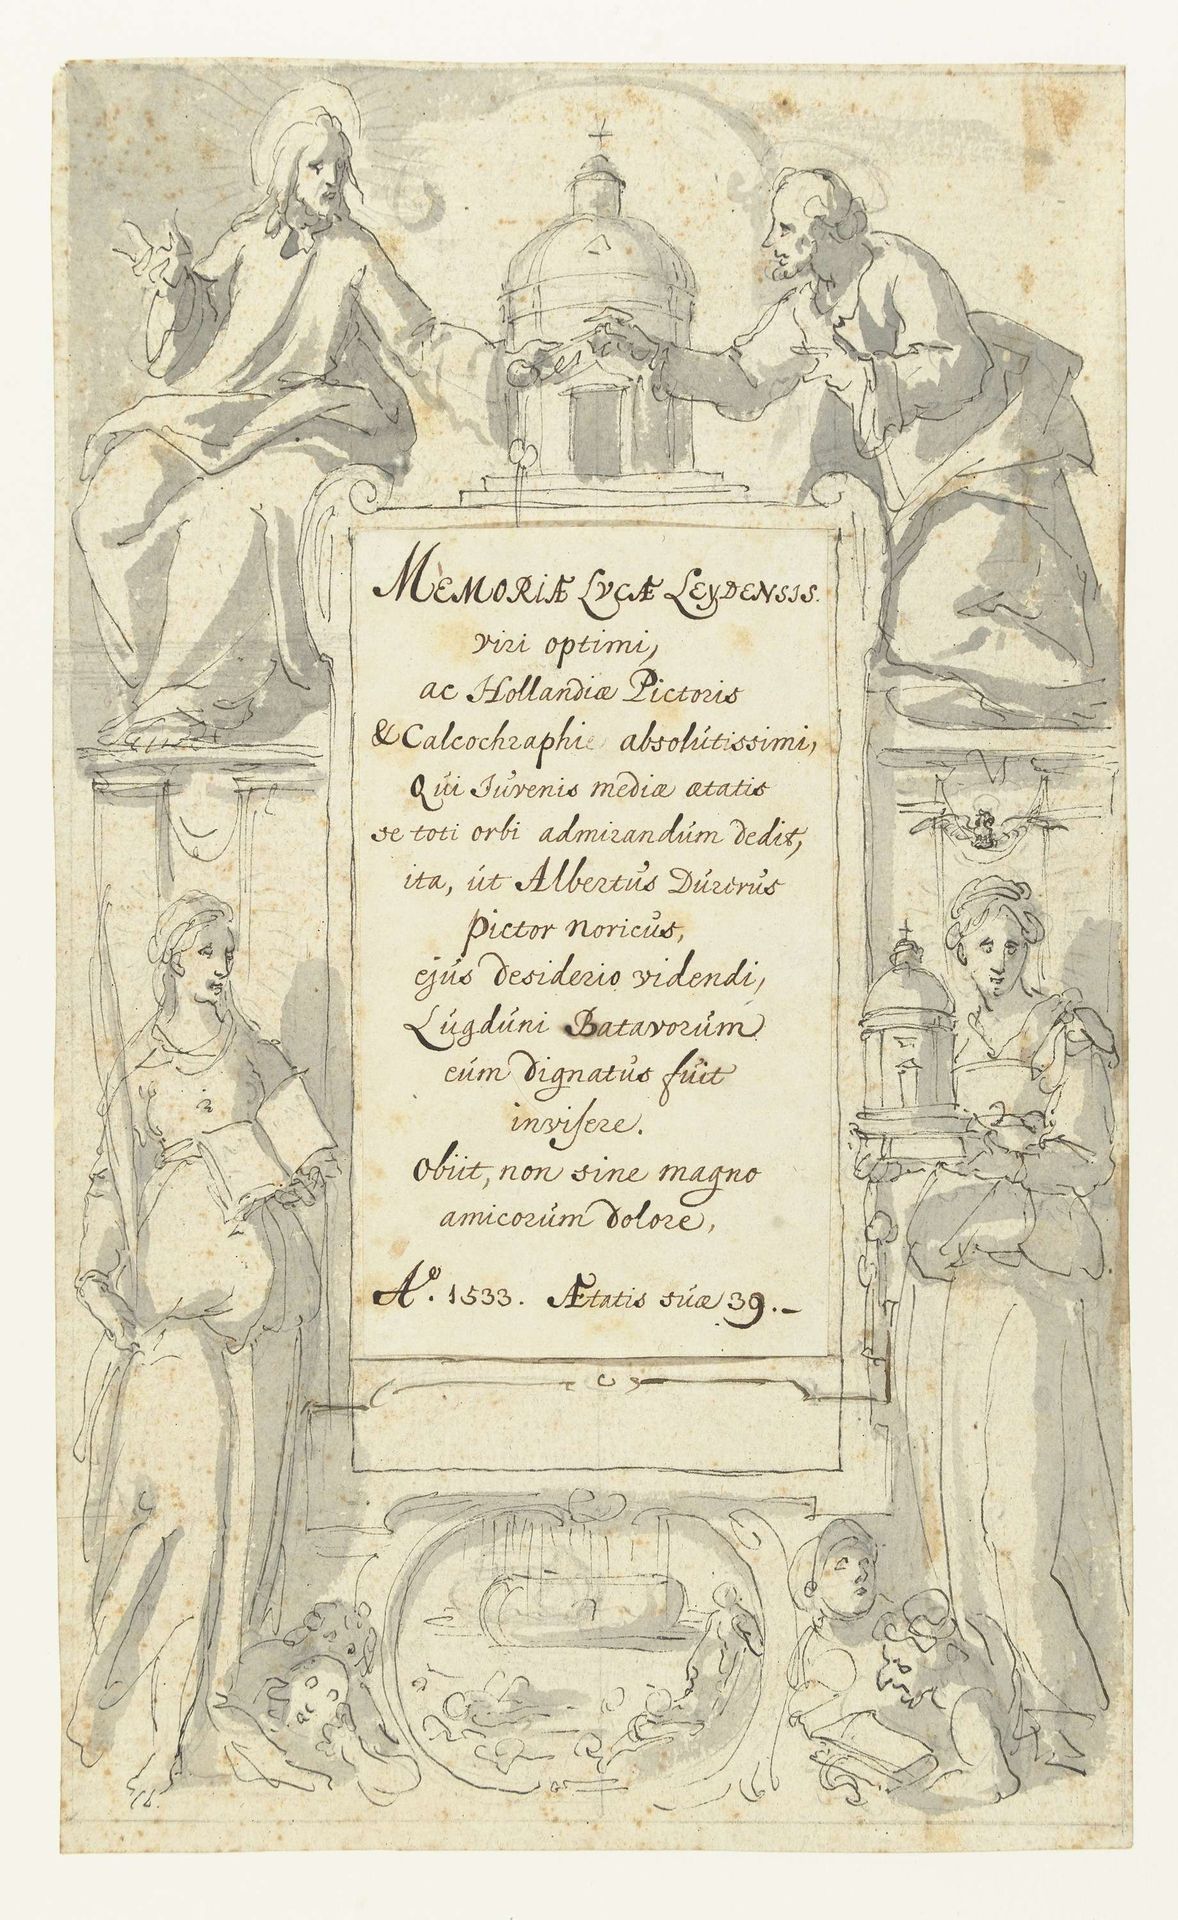 MEMORIÆ LVCÆ LEYDENSIS.
viri optimi,
ac Hollandiæ Pictoris
& Calcochraphi absolutissimi,
Qui Juvenis mediæ ætatis
se toti orbi admirandum dedit,
ita, ut Albertus Durerus
pictor noricus,
ejus desiderio videndi,
Lugduni Batavorum
eum dignatus fuit
invisere.
Obiit, non sine magno
amicorum dolore,
Aº. 1533. Ætatis suæ 39.–